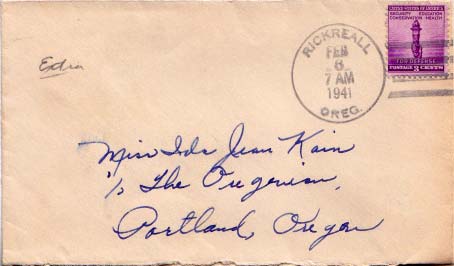 Edna
RICKREALL
FEB
6
7 AM
1941
OREG.
UNITED STATES OF AMERICA
SECURITY EDUCATION
CONSERVATION HEALTH
FOR DEFENSE
POSTAGE 3 CENTS
Miss Ida Jean Kain
c/o The Oregonian,
Portland, Oregon